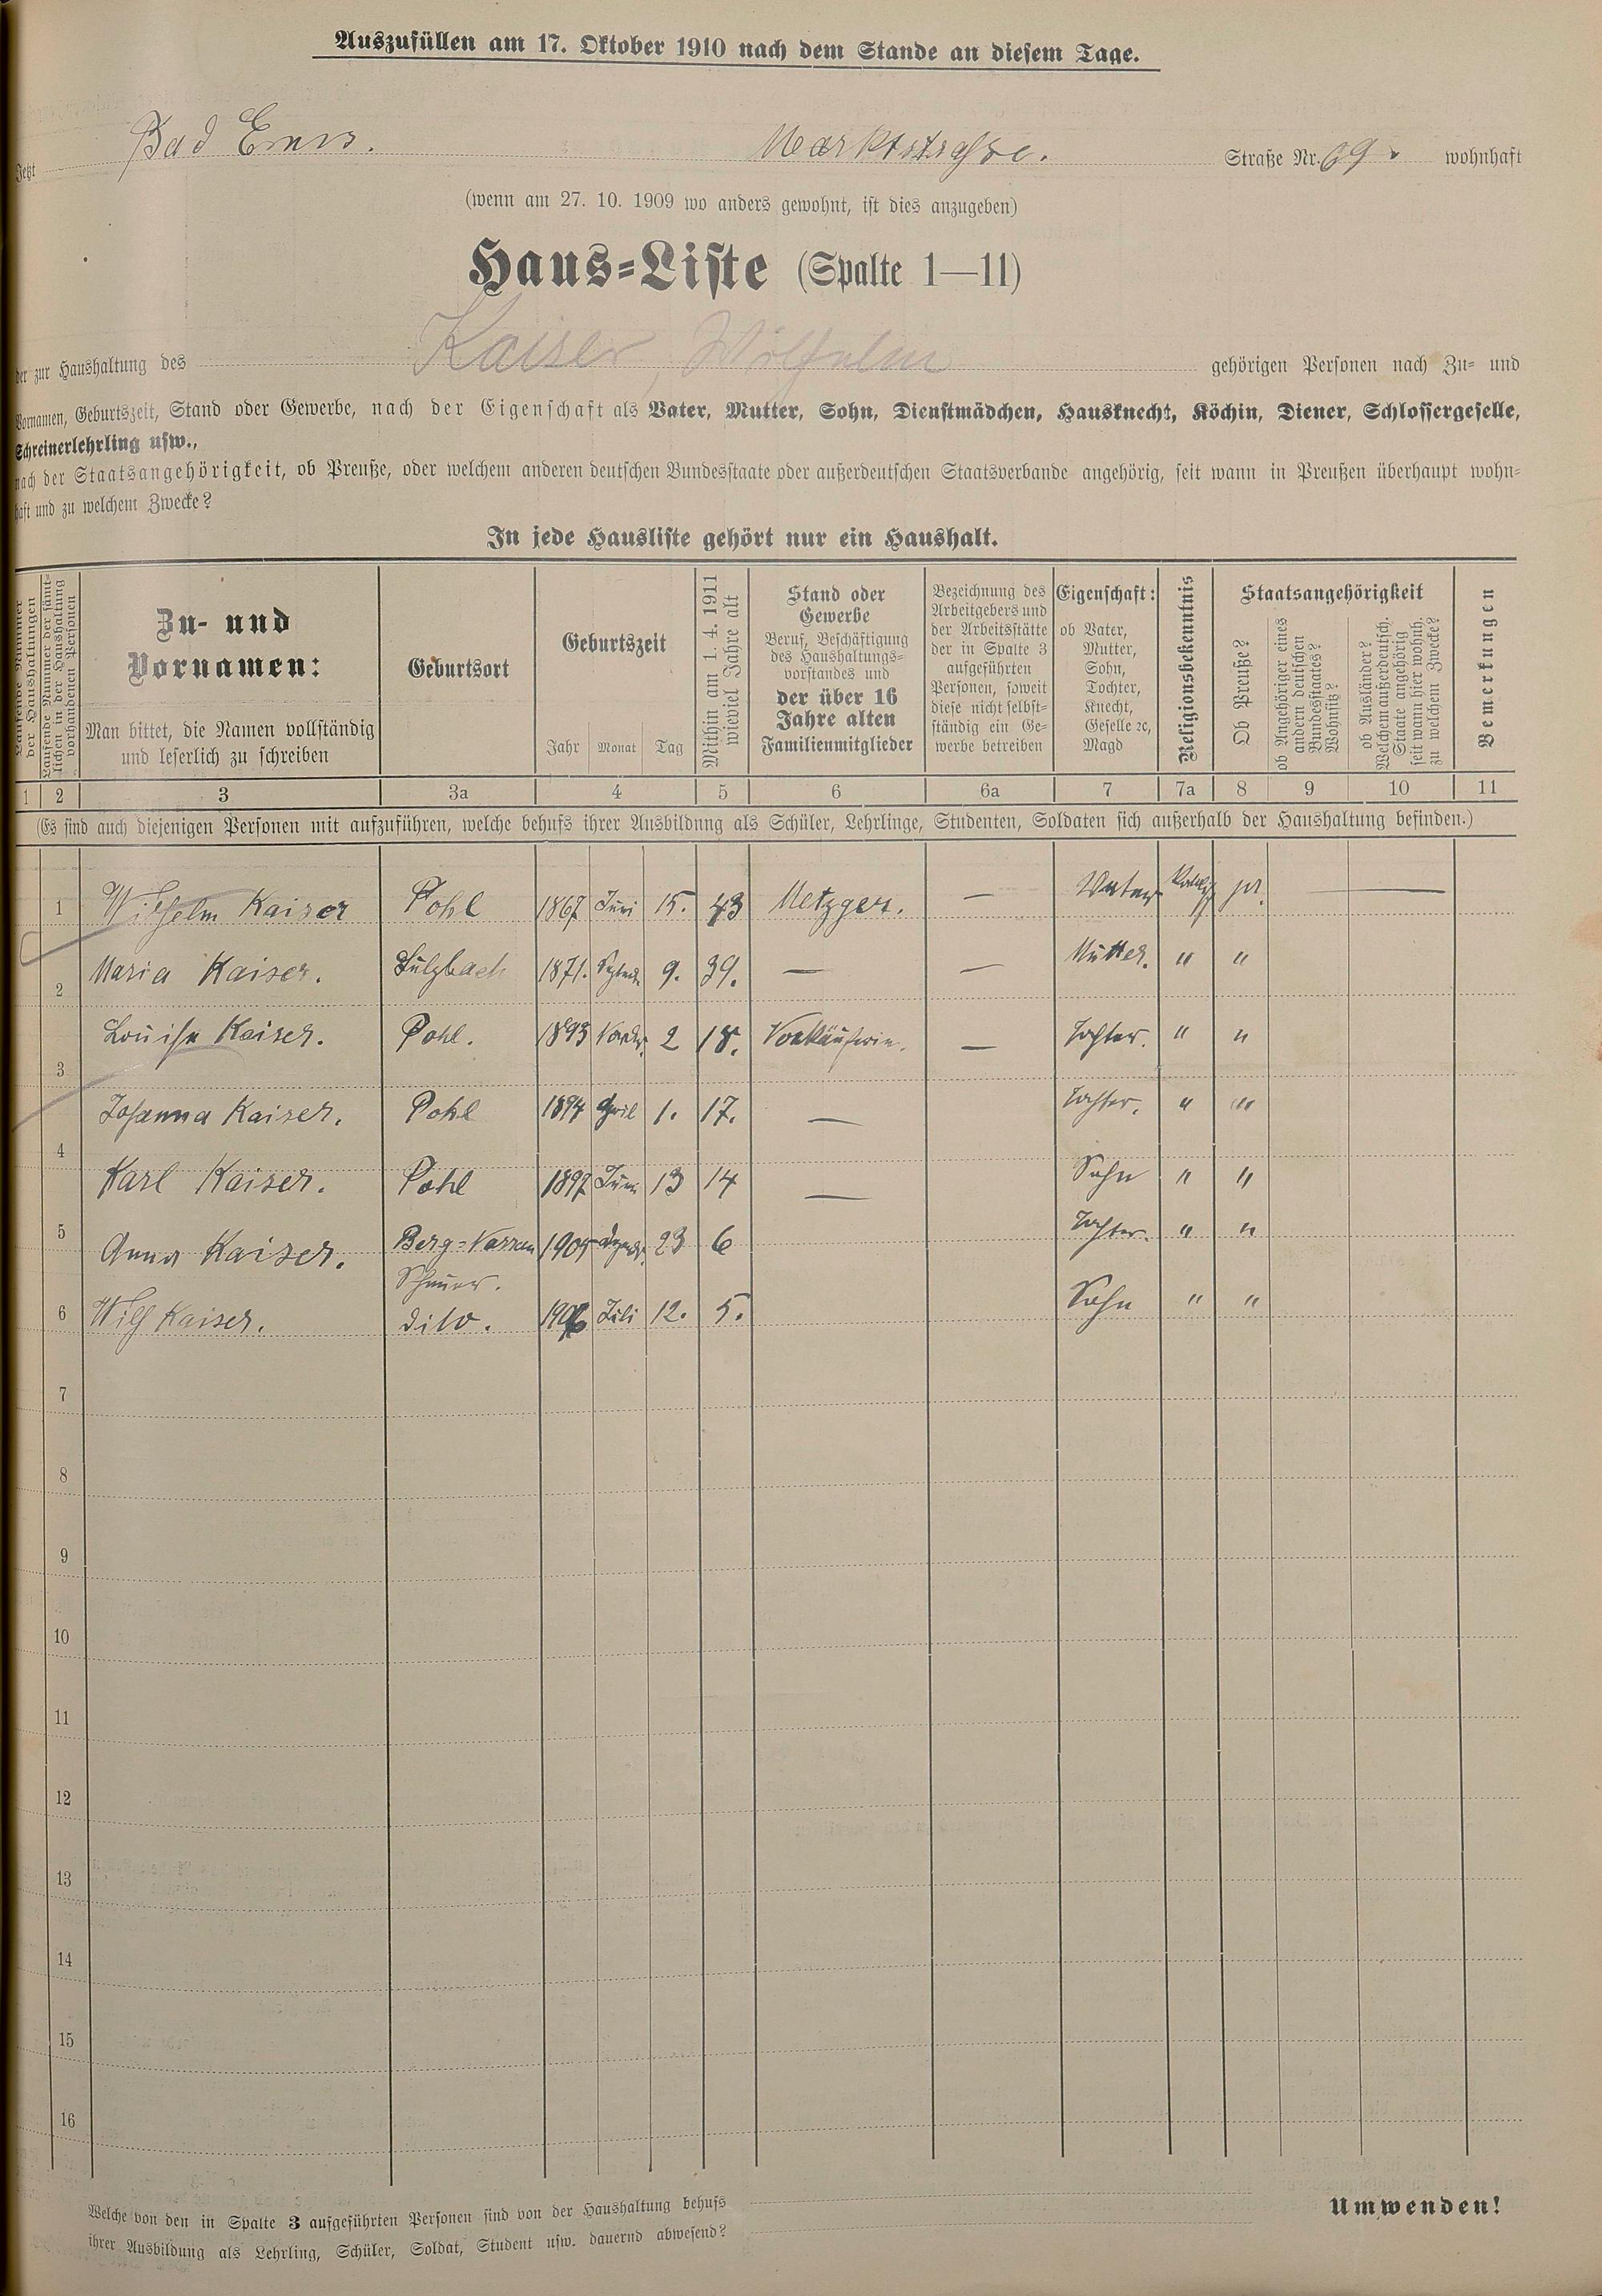 Auszufüllen am 17. Oktober 1910 nach dem Stande an diesem Tage.
Jetzt Bad Ems. Marktstraße. Straße Nr. 69. wohnhaft
(wenn am 27. 10. 1909 wo anders gewohnt, ist dies anzugeben)
Haus-Liste (Spalte 1—11)
der zur Haushaltung des Kaiser, Wilhelm gehörigen Personen nach Zu- und
Vornamen, Geburtszeit, Stand oder Gewerbe, nach der Eigenschaft als Vater, Mutter, Sohn, Dienstmädchen, Hausknecht, Köchin, Diener, Schlossergeselle,
Schreinerlehrling usw.,
nach der Staatsangehörigkeit, ob Preuße, oder welchem anderen deutschen Bundesstaate oder außerdeutschen Staatsverbande angehörig, seit wann in Preußen überhaupt wohn-
haft und zu welchem Zwecke?
In jede Hausliste gehört nur ein Haushalt.
Laufende Nummer der Haushaltungen
Laufende Nummer der sämt-
lichen in der Haushaltung
vorhandenen Personen
Zu- und
Vornamen:
Man bittet, die Namen vollständig
und leserlich zu schreiben
Geburtsort
Geburtszeit
Jahr Monat Tag
Mithin am 1. 4. 1911
wieviel Jahre alt
Stand oder
Gewerbe
Beruf, Beschäftigung
des Haushaltungs-
vorstandes und
der über 16
Jahre alten
Familienmitglieder
Bezeichnung des
Arbeitgebers und
der Arbeitsstätte
der in Spalte 3
aufgeführten
Personen, soweit
diese nicht selbst-
ständig ein Ge-
werbe betreiben
Eigenschaft:
ob Vater,
Mutter,
Sohn,
Tochter,
Knecht,
Geselle ꝛc,
Magd
Religionsbekenntnis
Staatsangehörigkeit
Ob Preuße?
ob Angehöriger eines
andern deutschen
Bundesstaates?
Wohnsitz?
ob Ausländer?
Welchem außerdeutsch.
Staate angehörig
seit wann hier wohnh.
zu welchem Zwecke?
Bemerkungen
1 2 3 3a 4 5 6 6a 7 7a 8 9 10 11
(Es sind auch diejenigen Personen mit aufzuführen, welche behufs ihrer Ausbildung als Schüler, Lehrlinge, Studenten, Soldaten sich außerhalb der Haushaltung befinden.)
1 Wilhelm Kaiser Pohl 1867 Juni 15. 43 Metzger. — Vater Kathl. pr. —
2 Maria Kaiser. Sulzbach 1871. Septembr. 9. 39. — — Mutter. " "
3 Louise Kaiser. Pohl. 1893 Novbr. 2 18. Verkäuferin. — Tochter. " "
4 Johanna Kaiser. Pohl 1894 April 1. 17. — Tochter. " "
5 Karl Kaiser. Pohl 1897 Juni 13 14 — Sohn " "
6 Anna Kaiser. Berg-Nassau 1904 Dezebr. 23 6 Tochter. " "
Scheuer.
Wilh Kaiser. dito. 1906 Juli 12. 5. Sohn " "
7
8
9
10
11
12
13
14
15
16
Welche von den in Spalte 3 aufgeführten Personen sind von der Haushaltung behufs
ihrer Ausbildung als Lehrling, Schüler, Soldat, Student usw. dauernd abwesend?
Umwenden!